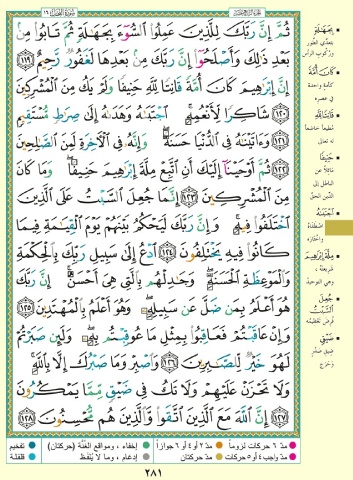 سُورَةُ النَّحْلِ ١٦
ثُمَّ إِنَّ رَبَّكَ لِلَّذِينَ عَمِلُوا۟ ٱلسُّوٓءَ بِجَهَـٰلَةٍ ثُمَّ تَابُوا۟ مِنۢ
بَعْدِ ذَٰلِكَ وَأَصْلَحُوٓا۟ إِنَّ رَبَّكَ مِنۢ بَعْدِهَا لَغَفُورٌ رَّحِيمٌ ﴿١١٩﴾
إِنَّ إِبْرَٰهِيمَ كَانَ أُمَّةً قَانِتًا لِّلَّهِ حَنِيفًا وَلَمْ يَكُ مِنَ ٱلْمُشْرِكِينَ
﴿١٢٠﴾ شَاكِرًا لِّأَنْعُمِهِ ۚ ٱجْتَبَىٰهُ وَهَدَىٰهُ إِلَىٰ صِرَٰطٍ مُّسْتَقِيمٍ
﴿١٢١﴾ وَءَاتَيْنَـٰهُ فِى ٱلدُّنْيَا حَسَنَةً ۖ وَإِنَّهُۥ فِى ٱلْـَٔاخِرَةِ لَمِنَ ٱلصَّـٰلِحِينَ
﴿١٢٢﴾ ثُمَّ أَوْحَيْنَآ إِلَيْكَ أَنِ ٱتَّبِعْ مِلَّةَ إِبْرَٰهِيمَ حَنِيفًا ۖ وَمَا كَانَ
مِنَ ٱلْمُشْرِكِينَ ﴿١٢٣﴾ إِنَّمَا جُعِلَ ٱلسَّبْتُ عَلَى ٱلَّذِينَ
ٱخْتَلَفُوا۟ فِيهِ ۚ وَإِنَّ رَبَّكَ لَيَحْكُمُ بَيْنَهُمْ يَوْمَ ٱلْقِيَـٰمَةِ فِيمَا
كَانُوا۟ فِيهِ يَخْتَلِفُونَ ﴿١٢٤﴾ ٱدْعُ إِلَىٰ سَبِيلِ رَبِّكَ بِٱلْحِكْمَةِ
وَٱلْمَوْعِظَةِ ٱلْحَسَنَةِ ۖ وَجَـٰدِلْهُم بِٱلَّتِى هِىَ أَحْسَنُ ۚ إِنَّ رَبَّكَ
هُوَ أَعْلَمُ بِمَن ضَلَّ عَن سَبِيلِهِۦ ۖ وَهُوَ أَعْلَمُ بِٱلْمُهْتَدِينَ ﴿١٢٥﴾
وَإِنْ عَاقَبْتُمْ فَعَاقِبُوا۟ بِمِثْلِ مَا عُوقِبْتُم بِهِۦ ۖ وَلَئِن صَبَرْتُمْ
لَهُوَ خَيْرٌ لِّلصَّـٰبِرِينَ ﴿١٢٦﴾ وَٱصْبِرْ وَمَا صَبْرُكَ إِلَّا بِٱللَّهِ ۚ
وَلَا تَحْزَنْ عَلَيْهِمْ وَلَا تَكُ فِى ضَيْقٍ مِّمَّا يَمْكُرُونَ
﴿١٢٧﴾ إِنَّ ٱللَّهَ مَعَ ٱلَّذِينَ ٱتَّقَوا۟ وَّٱلَّذِينَ هُم مُّحْسِنُونَ ﴿١٢٨﴾
بِجَهَـٰلَةٍ
بتعدي الطور
وركوب الرأس
كَانَ أُمَّةً
كأمة واحدة
في عصره
قَانِتًا لِلَّهِ
مُطيعاً خاضعاً
له تعالى
حَنِيفًا
مائلاً عن
الباطل إلى
الدين الحق
ٱجْتَبَىٰهُ
اصطفاه
واختاره
مِلَّةَ إِبْرَٰهِيمَ
شريعته،
وهي التوحيد
جُعِلَ
ٱلسَّبْتُ
فُرض تعظيمُه
ضَيْقٍ
ضيق صدر
وحَرَج
مدّ ٦ حركات لزوماً
مدّ ٢ أو ٤ أو ٦ جوازاً
إخفاء، ومواقع الغُنَّة (حركتان)
تفخيم
مدّ واجب ٤ أو ٥ حركات
مدّ حركتان
إدغام، وما لا يُلفَظ
قلقلة
٢٨١